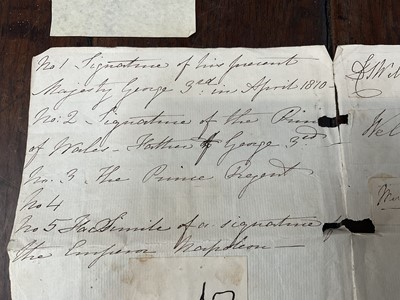 No 1 Signature of his present
Majesty George 3rd: in April 1810-
No: 2 - Signature of the Prin
of Wales - Father of George 3rd -
No. 3 - The Prince Regent
No 4
No 5 Fac Simile of a signature
the Emperor Napoleon -
Wel